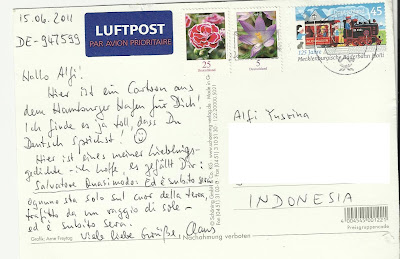 15.06.2011
DE-947599
LUFTPOST
PAR AVION PRIORITAIRE
25
Deutschland
5
Deutschland
45
125 Jahre
Mecklenburgische Bäderbahn Molli
Hallo Alfi!
Hier ist ein Cartoon aus
dem Hamburger Hafen für Dich.
Ich finde es ja toll, dass Du
Deutsch sprichst!
Hier ist eines meiner Lieblings-
gedichte - ich hoffe, es gefällt Dir:
Salvatore Quasimodo: Ed è subito sera
ognuno sta solo sul cuor della terra,
trafitto da un raggio di sole -
ed è subito sera.
Viele liebe Grüße, Claus
Alfi Yusrina
INDONESIA
Grafik: Anne Freytag
Nachahmung verboten
Preisgruppencode